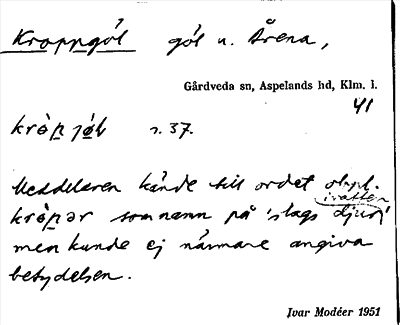 Kroppgöl göl u. Årena,
Gårdveda sn, Aspelands hd, Klm. l.
41
s. 37.
Meddelaren kände till ordet obpl.
i vatten
som namn på 'slags djur'
men kunde ej närmare angiva
betydelsen.
Ivar Modéer 1951